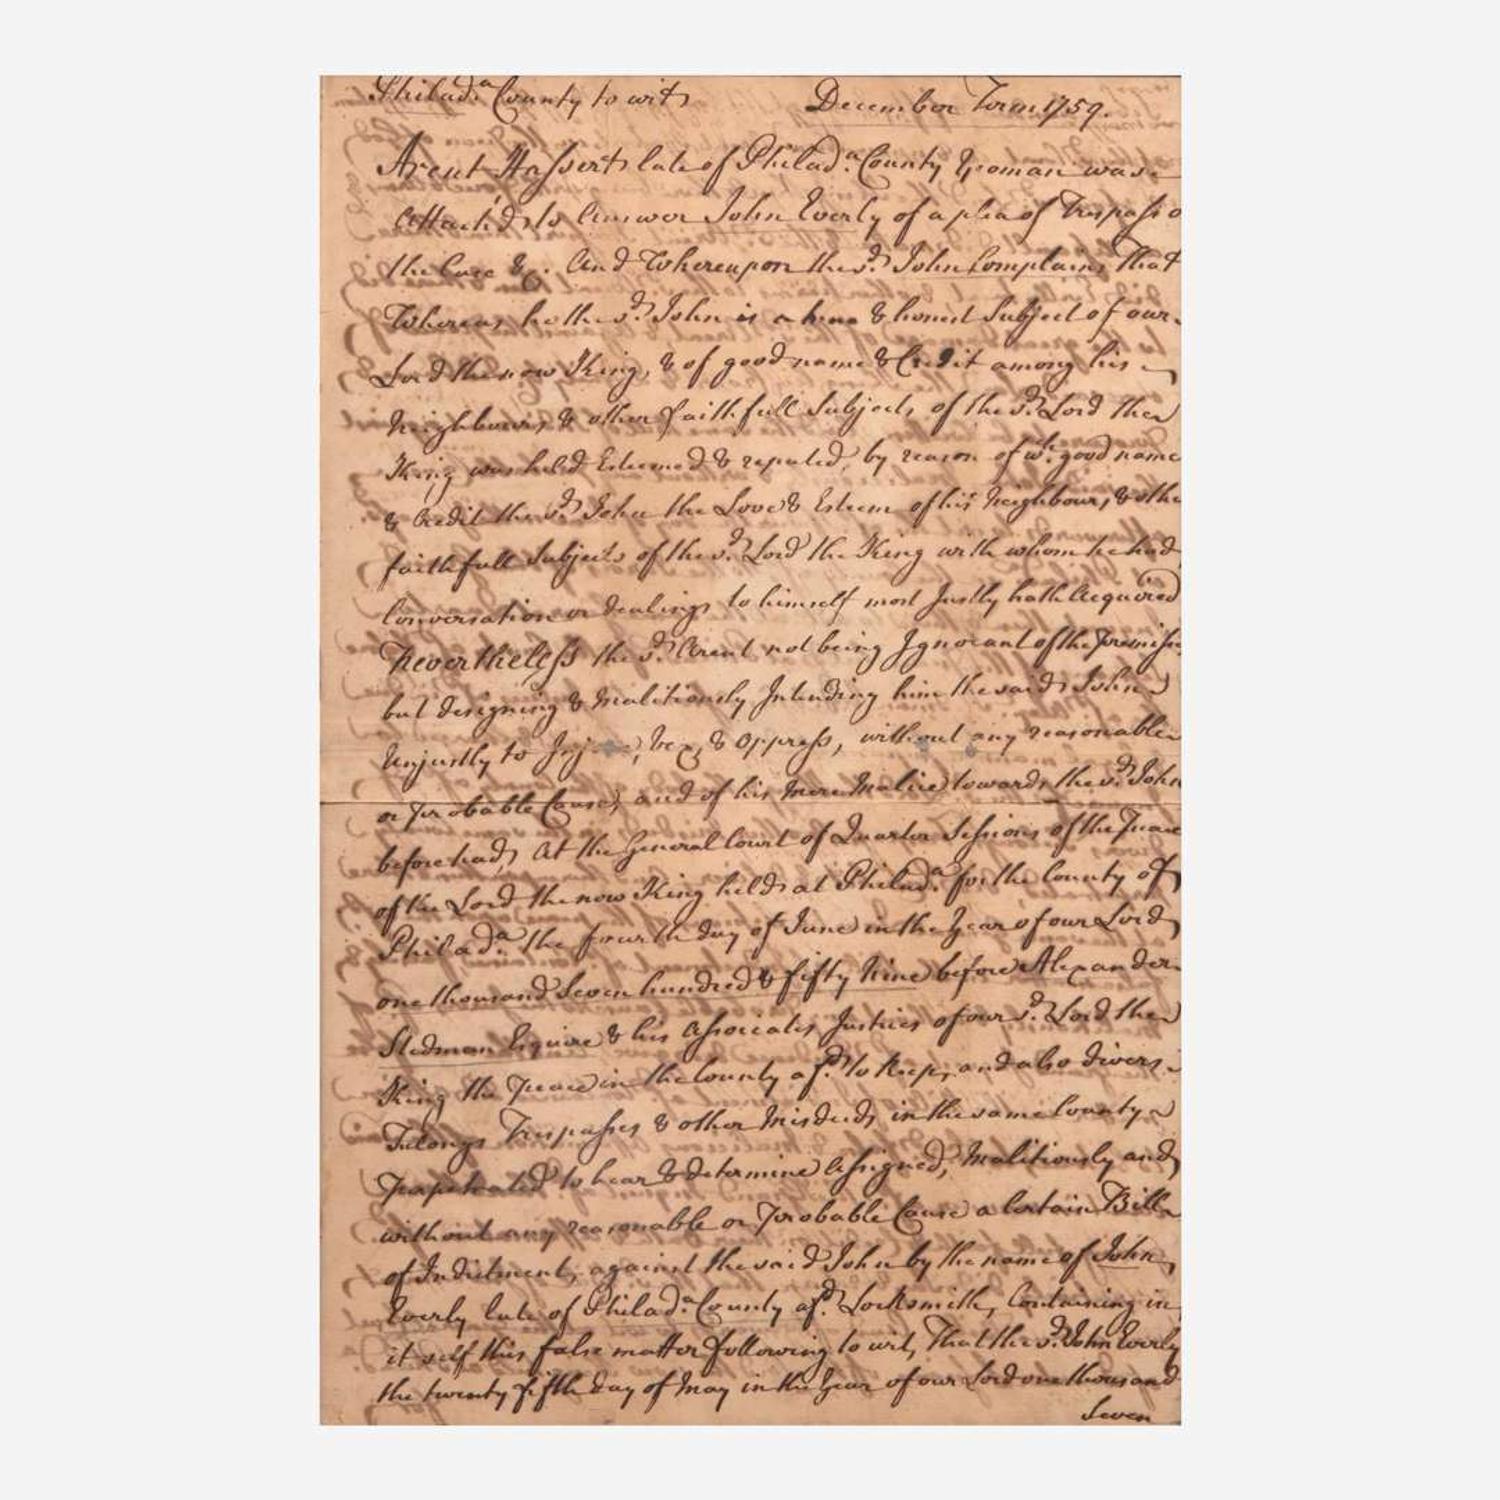 Philad.a County to wit December Term 1759.
Arent Hassert late of Philad.a County Yeoman was
attach'd to answer John Everly of a plea of Trespass o
the Case &c. And Whereupon the sd. John Complains That
Whereas he the sd. John is a true & honest Subject of our
Lord the now King, & of good name & Credit among his
Neighbours, & other faithfull Subjects of the sd. Lord the
King was held Esteemed & reputed, by reason of wch. good name
& Credit the sd. John the Love & Esteem of his Neighbours, & othe
faithfull Subjects of the sd. Lord the King with whom he had
Conversation or dealings to himself most Justly hath Acquired
Nevertheless the sd. Arent not being Ignorant of the Premises
but designing & Malitiously Intending him the said John
Unjustly to Vex, & Oppress, without any reasonable
or Probable Cause, and of his Mere Malice towards the sd. John
before had, At the General Court of Quarter Sessions of the Peace
of the Lord the now King held at Philad.a for the County of
Philad.a the fourth day of June in the Year of our Lord
one thousand Seven hundred & fifty Nine before Alexander
Stedman Esquire & his Associates, Justices of our sd. Lord the
King the Peace in the County afd. to keep, and also divers
Felonys Trespasses & other Misdeeds in the same County
Perpetrated to hear & determine Assigned, Malitiously and
without any reasonable or Probable Cause a Certain Bill
of Indictment, against the said John by the name of John
Everly late of Philad.a County afd. Locksmith, Containing in
it self this false matter following to wit, That the sd. John Everly
the twenty fifth day of May in the Year of our Lord one thousand
Seven